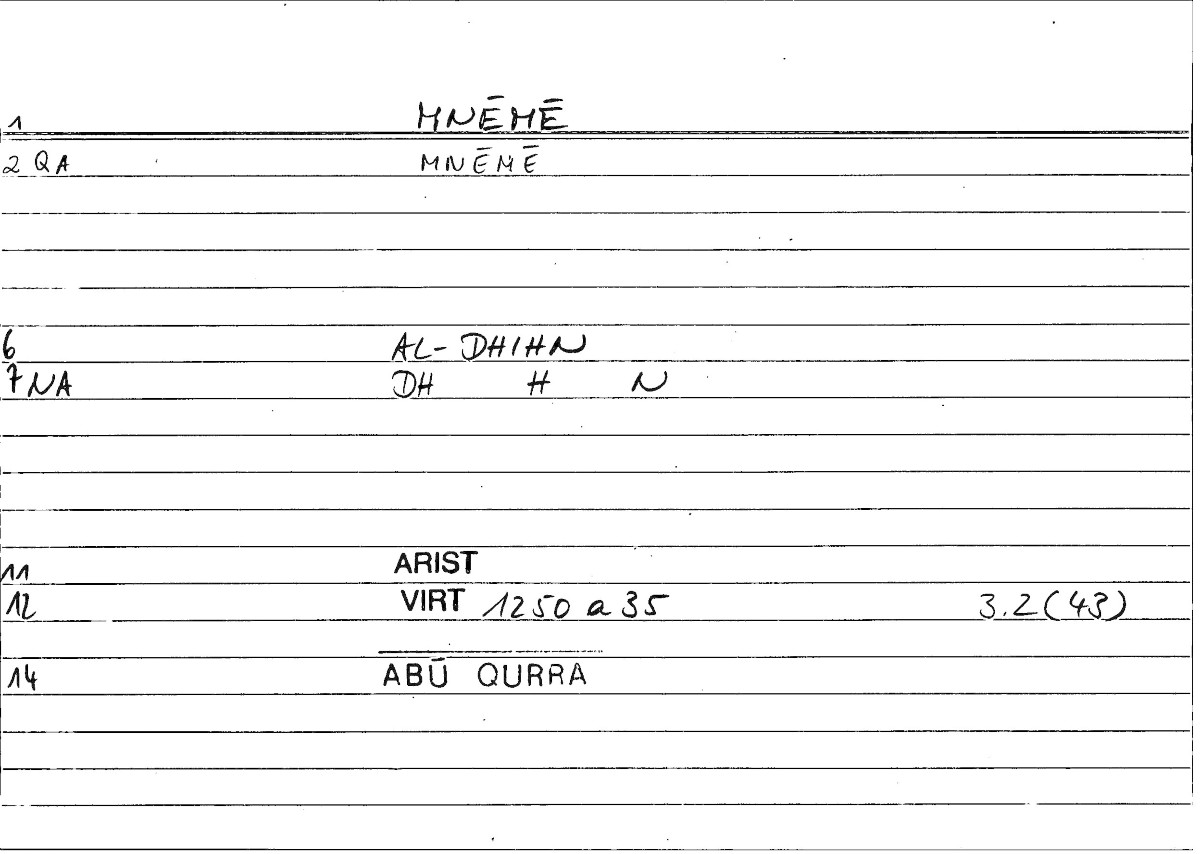 1 MNĒMĒ
2 QA MNĒMĒ
6 AL-DHIHN
7 NA DH H N
11 ARIST
12 VIRT 1250 a 35 3.2(43)
14 ABŪ QURRA